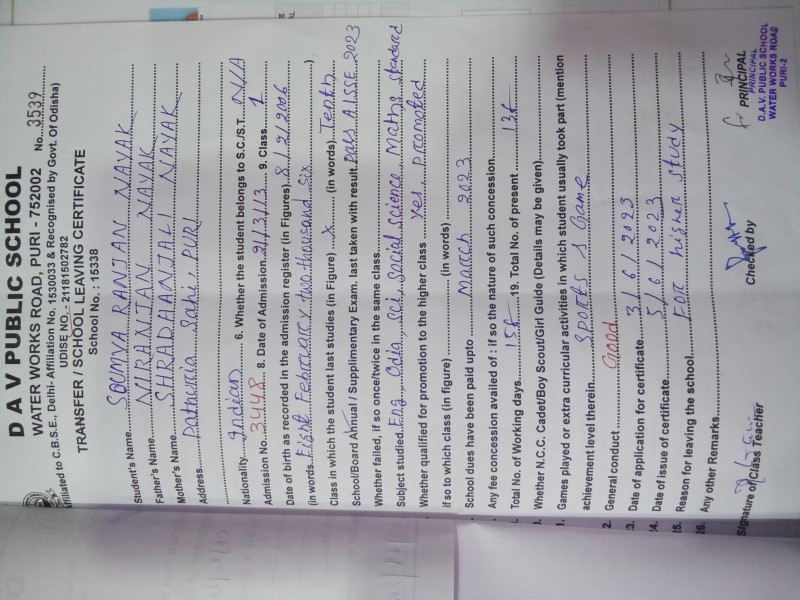 D A V PUBLIC SCHOOL
WATER WORKS ROAD, PURI - 752002 No. 3539
Affiliated to C.B.S.E., Delhi- Affiliation No. 1530033 & Recognised by Govt. Of Odisha)
UDISE NO.- 21181502782
TRANSFER / SCHOOL LEAVING CERTIFICATE
School No. : 15338
Student's Name SOUMYA RANJAN NAYAK
Father's Name NIRANJAN NAYAK
Mother's Name SHRADHANJALI NAYAK
Address Patherria Sahi, PURI
Nationality Indian 6. Whether the student belongs to S.C./S.T. N/A
Admission No. 3448 8. Date of Admission 2/3/13 9. Class 1
Date of birth as recorded in the admission register (in Figures) 8/2/2006
(in words Eight February two thousand six )
Class in which the student last studies (in Figure) X (in words) Tenth
School/Board Annual / Supplimentary Exam. last taken with result Pass AISSE 2023
Whether failed, if so once/twice in the same class
Subject studied Eng, Odia, sci, social science, Maths standard
Whether qualified for promotion to the higher class yes, promoted
if so to which class (in figure) (in words)
School dues have been paid upto March 2023
Any fee concession availed of : if so the nature of such concession
Total No. of Working days 158 19. Total No. of present 138
Whether N.C.C. Cadet/Boy Scout/Girl Guide (Details may be given)
1. Games played or extra curricular activities in which student usually took part (mention
achievement level therein Sports & Game
2. General conduct Good
3. Date of application for certificate 3/6/2023
24. Date of issue of certificate 5/6/2023
25. Reason for leaving the school For higher study
26. Any other Remarks
Signature of Class Teacher Checked by PRINCIPAL
PRINCIPAL
D.A.V. PUBLIC SCHOOL
WATER WORKS ROAD
PURI-2